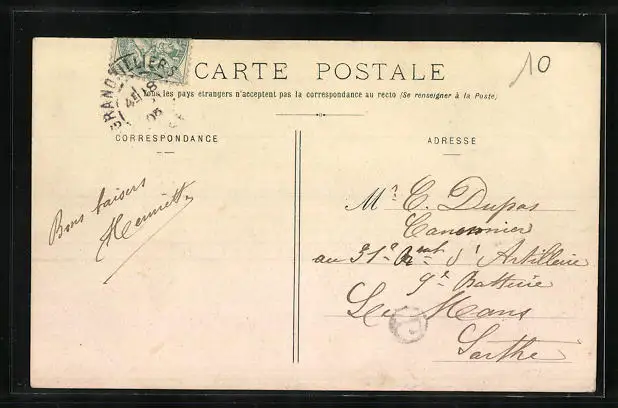 10
GRANDVILLIERS
CARTE POSTALE
Tous les pays étrangers n'acceptent pas la correspondance au recto (Se renseigner à la Poste)
CORRESPONDANCE
Bons baisers
Henriette
ADRESSE
Mr. E. Dupas
Canonnier
au 31e d'Artillerie
9e Batterie
Le Mans
Sarthe